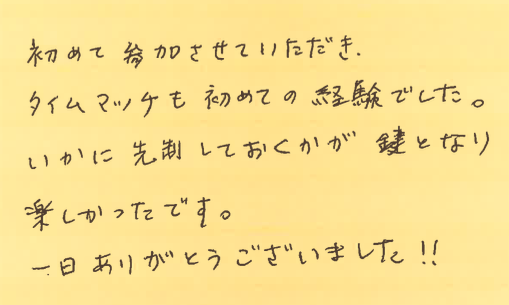 初めて参加させていただき、
タイムマッチも初めての経験でした。
いかに先制しておくかが鍵となり
楽しかったです。
一日ありがとうございました!!